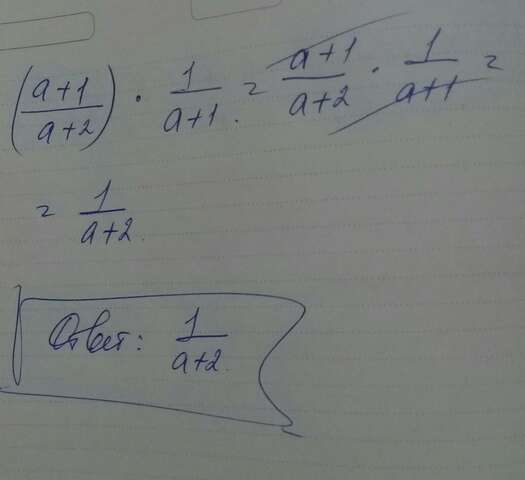 (a+1/a+2) · 1/a+1 = a+1/a+2 · 1/a+1 =
= 1/a+2.
Ответ: 1/a+2.